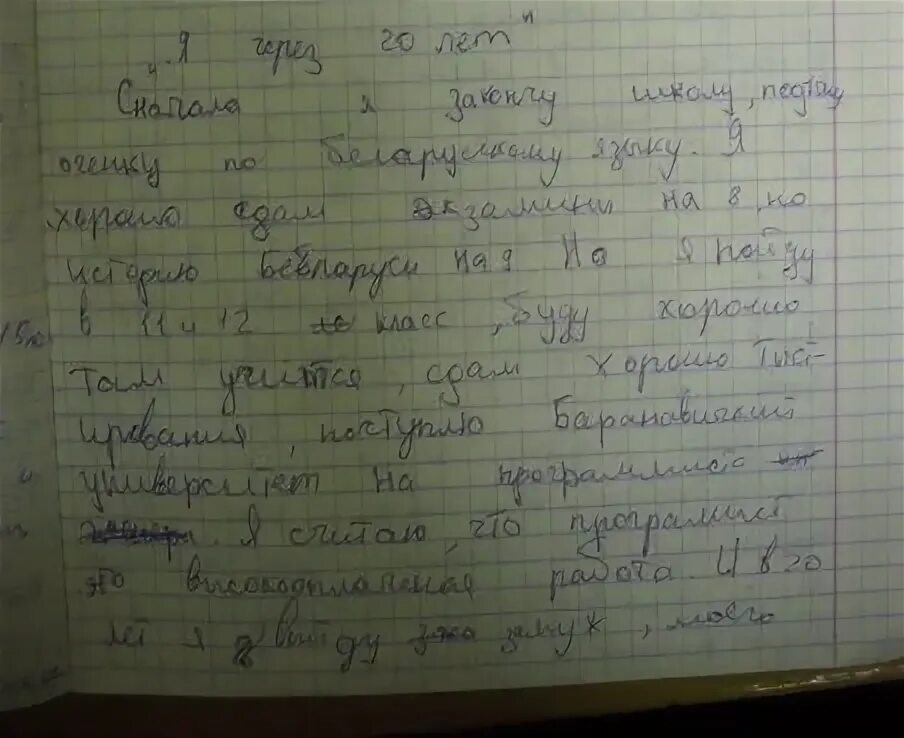 "Я через 20 лет"
Сначала я закончу школу, подтяну
оценку по беларускому языку. Я
хорошо сдам экзамины на 8, по
историю Бевларуси на 9 Но я пойду
в 11 и 12 класс, буду хорошо
там учится, сдам хорошо тист-
ирования, поступлю Баранавичский
университет на программиста
Я считаю, что програмист
это высокооплаченая работа. И в 20
лет я выйду замуж, моего